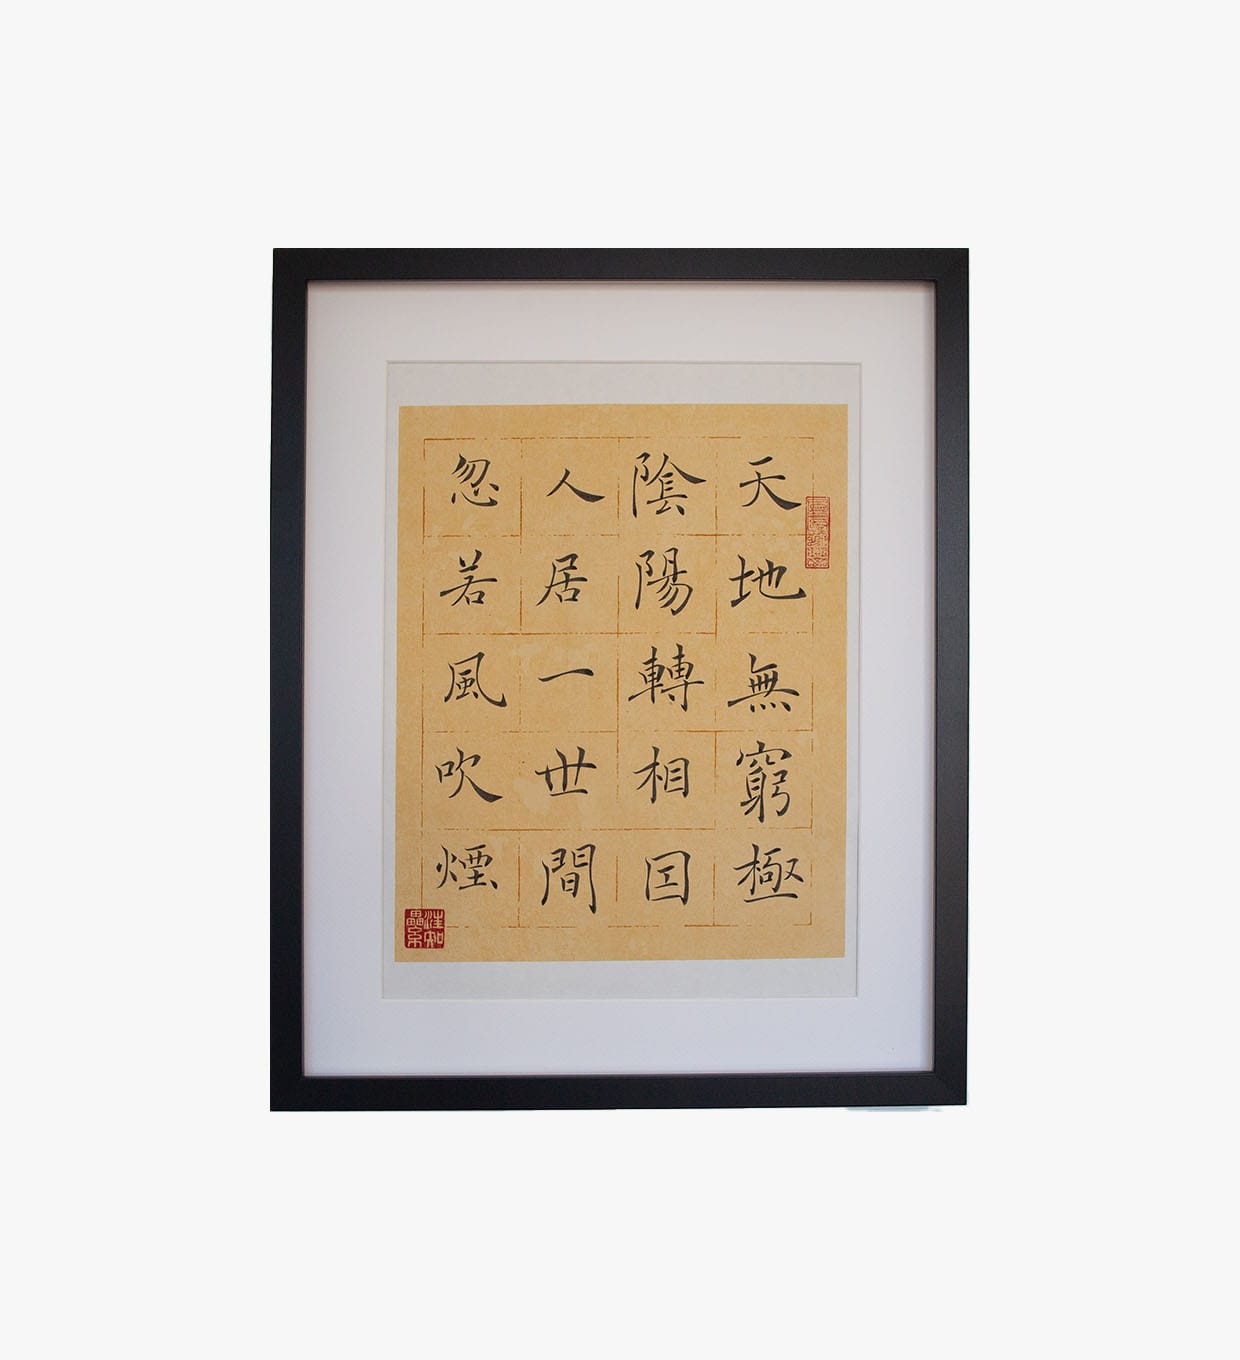 天地無窮極
陰陽轉相因
人居一世間
忽若風吹煙